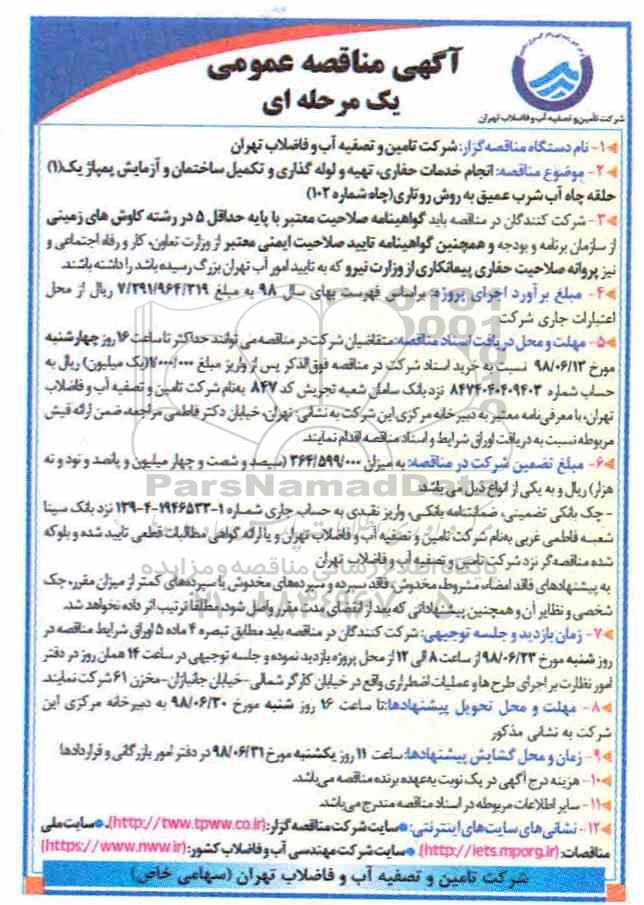 آگهی مناقصه عمومی
یک مرحله ای
شرکت تأمین و تصفیه آب و فاضلاب تهران
۱- نام دستگاه مناقصه‌گزار: شرکت تامین و تصفیه آب و فاضلاب تهران
۲- موضوع مناقصه: انجام خدمات حفاری، تهیه و لوله گذاری و تکمیل ساختمان و آزمایش پمپاژ یک(۱)
حلقه چاه آب شرب عمیق به روش روتاری(چاه شماره ۱۰۲)
۳- شرکت کنندگان در مناقصه باید گواهینامه صلاحیت معتبر با پایه حداقل ۵ در رشته کاوش های زمینی
از سازمان برنامه و بودجه و همچنین گواهینامه تایید صلاحیت ایمنی معتبر از وزارت تعاون، کار و رفاه اجتماعی و
نیز پروانه صلاحیت حفاری پیمانکاری از وزارت نیرو که به تایید امور آب تهران بزرگ رسیده باشد را داشته باشند.
۴- مبلغ برآورد اجرای پروژه: براساس فهرست بهای سال ۹۸ به مبلغ ۷/۲۹۱/۹۶۴/۳۱۹ ریال از محل
اعتبارات جاری شرکت
۵- مهلت و محل دریافت اسناد مناقصه: متقاضیان شرکت در مناقصه می توانند حداکثر تا ساعت ۱۶ روز چهارشنبه
مورخ ۹۸/۰۶/۱۳ نسبت به خرید اسناد شرکت در مناقصه فوق‌الذکر پس از واریز مبلغ ۱/۰۰۰/۰۰۰(یک میلیون) ریال به
حساب شماره ۸۴۷۴۰۴۰۴۰۹۴۰۳ نزد بانک سامان شعبه تجریش کد ۸۴۷ به‌نام شرکت تامین و تصفیه آب و فاضلاب
تهران، با معرفی‌نامه معتبر به دبیرخانه مرکزی این شرکت به نشانی: تهران، خیابان دکتر فاطمی مراجعه ضمن ارائه فیش
مربوطه نسبت به دریافت اوراق شرایط و اسناد مناقصه اقدام نمایند.
۶- مبلغ تضمین شرکت در مناقصه: به میزان ۳۶۴/۵۹۹/۰۰۰ (سیصد و شصت و چهار میلیون و پانصد و نود و نه
هزار) ریال و به یکی از انواع ذیل می باشد:
- چک بانکی تضمینی، ضمانتنامه بانکی، واریز نقدی به حساب جاری شماره ۱-۱۹۴۶۵۳۳-۴-۱۳۹ نزد بانک سینا
شعبه فاطمی غربی به‌نام شرکت تامین و تصفیه آب و فاضلاب تهران و یا ارائه گواهی مطالبات قطعی تایید شده و بلوکه
شده مناقصه‌گر نزد شرکت تامین و تصفیه آب و فاضلاب تهران
به پیشنهادهای فاقد امضاء، مشروط، مخدوش، فاقد سپرده و سپرده‌های مخدوش یا سپرده‌های کمتر از میزان مقرر، چک
شخصی و نظایر آن و همچنین پیشنهاداتی که بعد از انقضای مدت مقرر واصل شود، مطلقا ترتیب اثر داده نخواهد شد.
۷- زمان بازدید و جلسه توجیهی: شرکت کنندگان در مناقصه باید مطابق تبصره ۴ ماده ۵ اوراق شرایط مناقصه در
روز شنبه مورخ ۹۸/۰۶/۲۳ از ساعت ۸ الی ۱۲ از محل پروژه بازدید نموده و جلسه توجیهی در ساعت ۱۴ همان روز در دفتر
امور نظارت بر اجرای طرح ها و عملیات اضطراری واقع در خیابان کارگر شمالی-خیابان جانبازان-مخزن ۶۱ شرکت نمایند.
۸- مهلت و محل تحویل پیشنهادها: تا ساعت ۱۶ روز شنبه مورخ ۹۸/۰۶/۳۰ به دبیرخانه مرکزی این
شرکت به نشانی مذکور
۹- زمان و محل گشایش پیشنهادها: ساعت ۱۱ روز یکشنبه مورخ ۹۸/۰۶/۳۱ در دفتر امور بازرگانی و قراردادها
۱۰- هزینه درج آگهی در یک نوبت به‌عهده برنده مناقصه می‌باشد.
۱۱- سایر اطلاعات مربوطه در اسناد مناقصه مندرج می‌باشد.
۱۲- نشانی های سایت های اینترنتی: ● سایت شرکت مناقصه گزار: (http://tww.tpww.co.ir)، ● سایت ملی
مناقصات: (http://iets.mporg.ir)، ● سایت شرکت مهندسی آب و فاضلاب کشور: (https://www.nww.ir)
شرکت تامین و تصفیه آب و فاضلاب تهران (سهامی خاص)
ParsNamadData